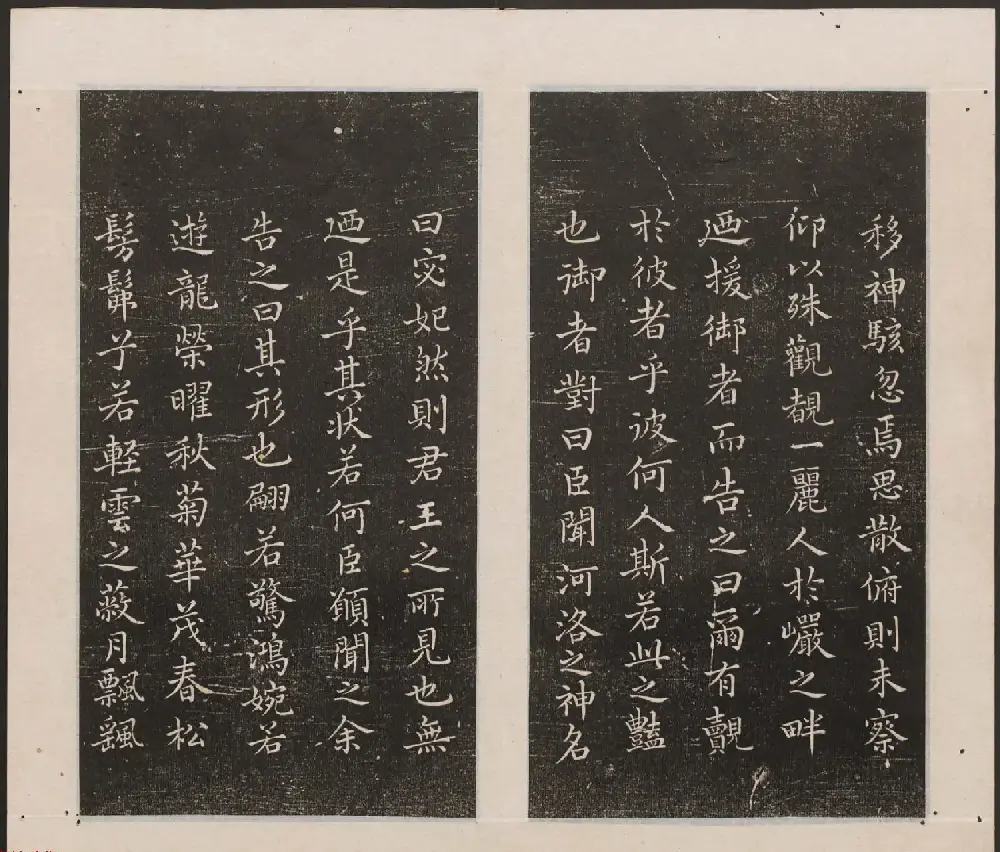 移神駭忽焉思散俯則未察
仰以殊觀覩一麗人於巖之畔
迺援御者而告之曰爾有覿
於彼者乎彼何人斯若此之豔
也御者對曰臣聞河洛之神名
曰宓妃然則君王之所見也無
迺是乎其状若何臣願聞之余
告之曰其形也翩若驚鴻婉若
遊龍榮曜秋菊華茂春松
髣髴兮若輕雲之蔽月飄颻